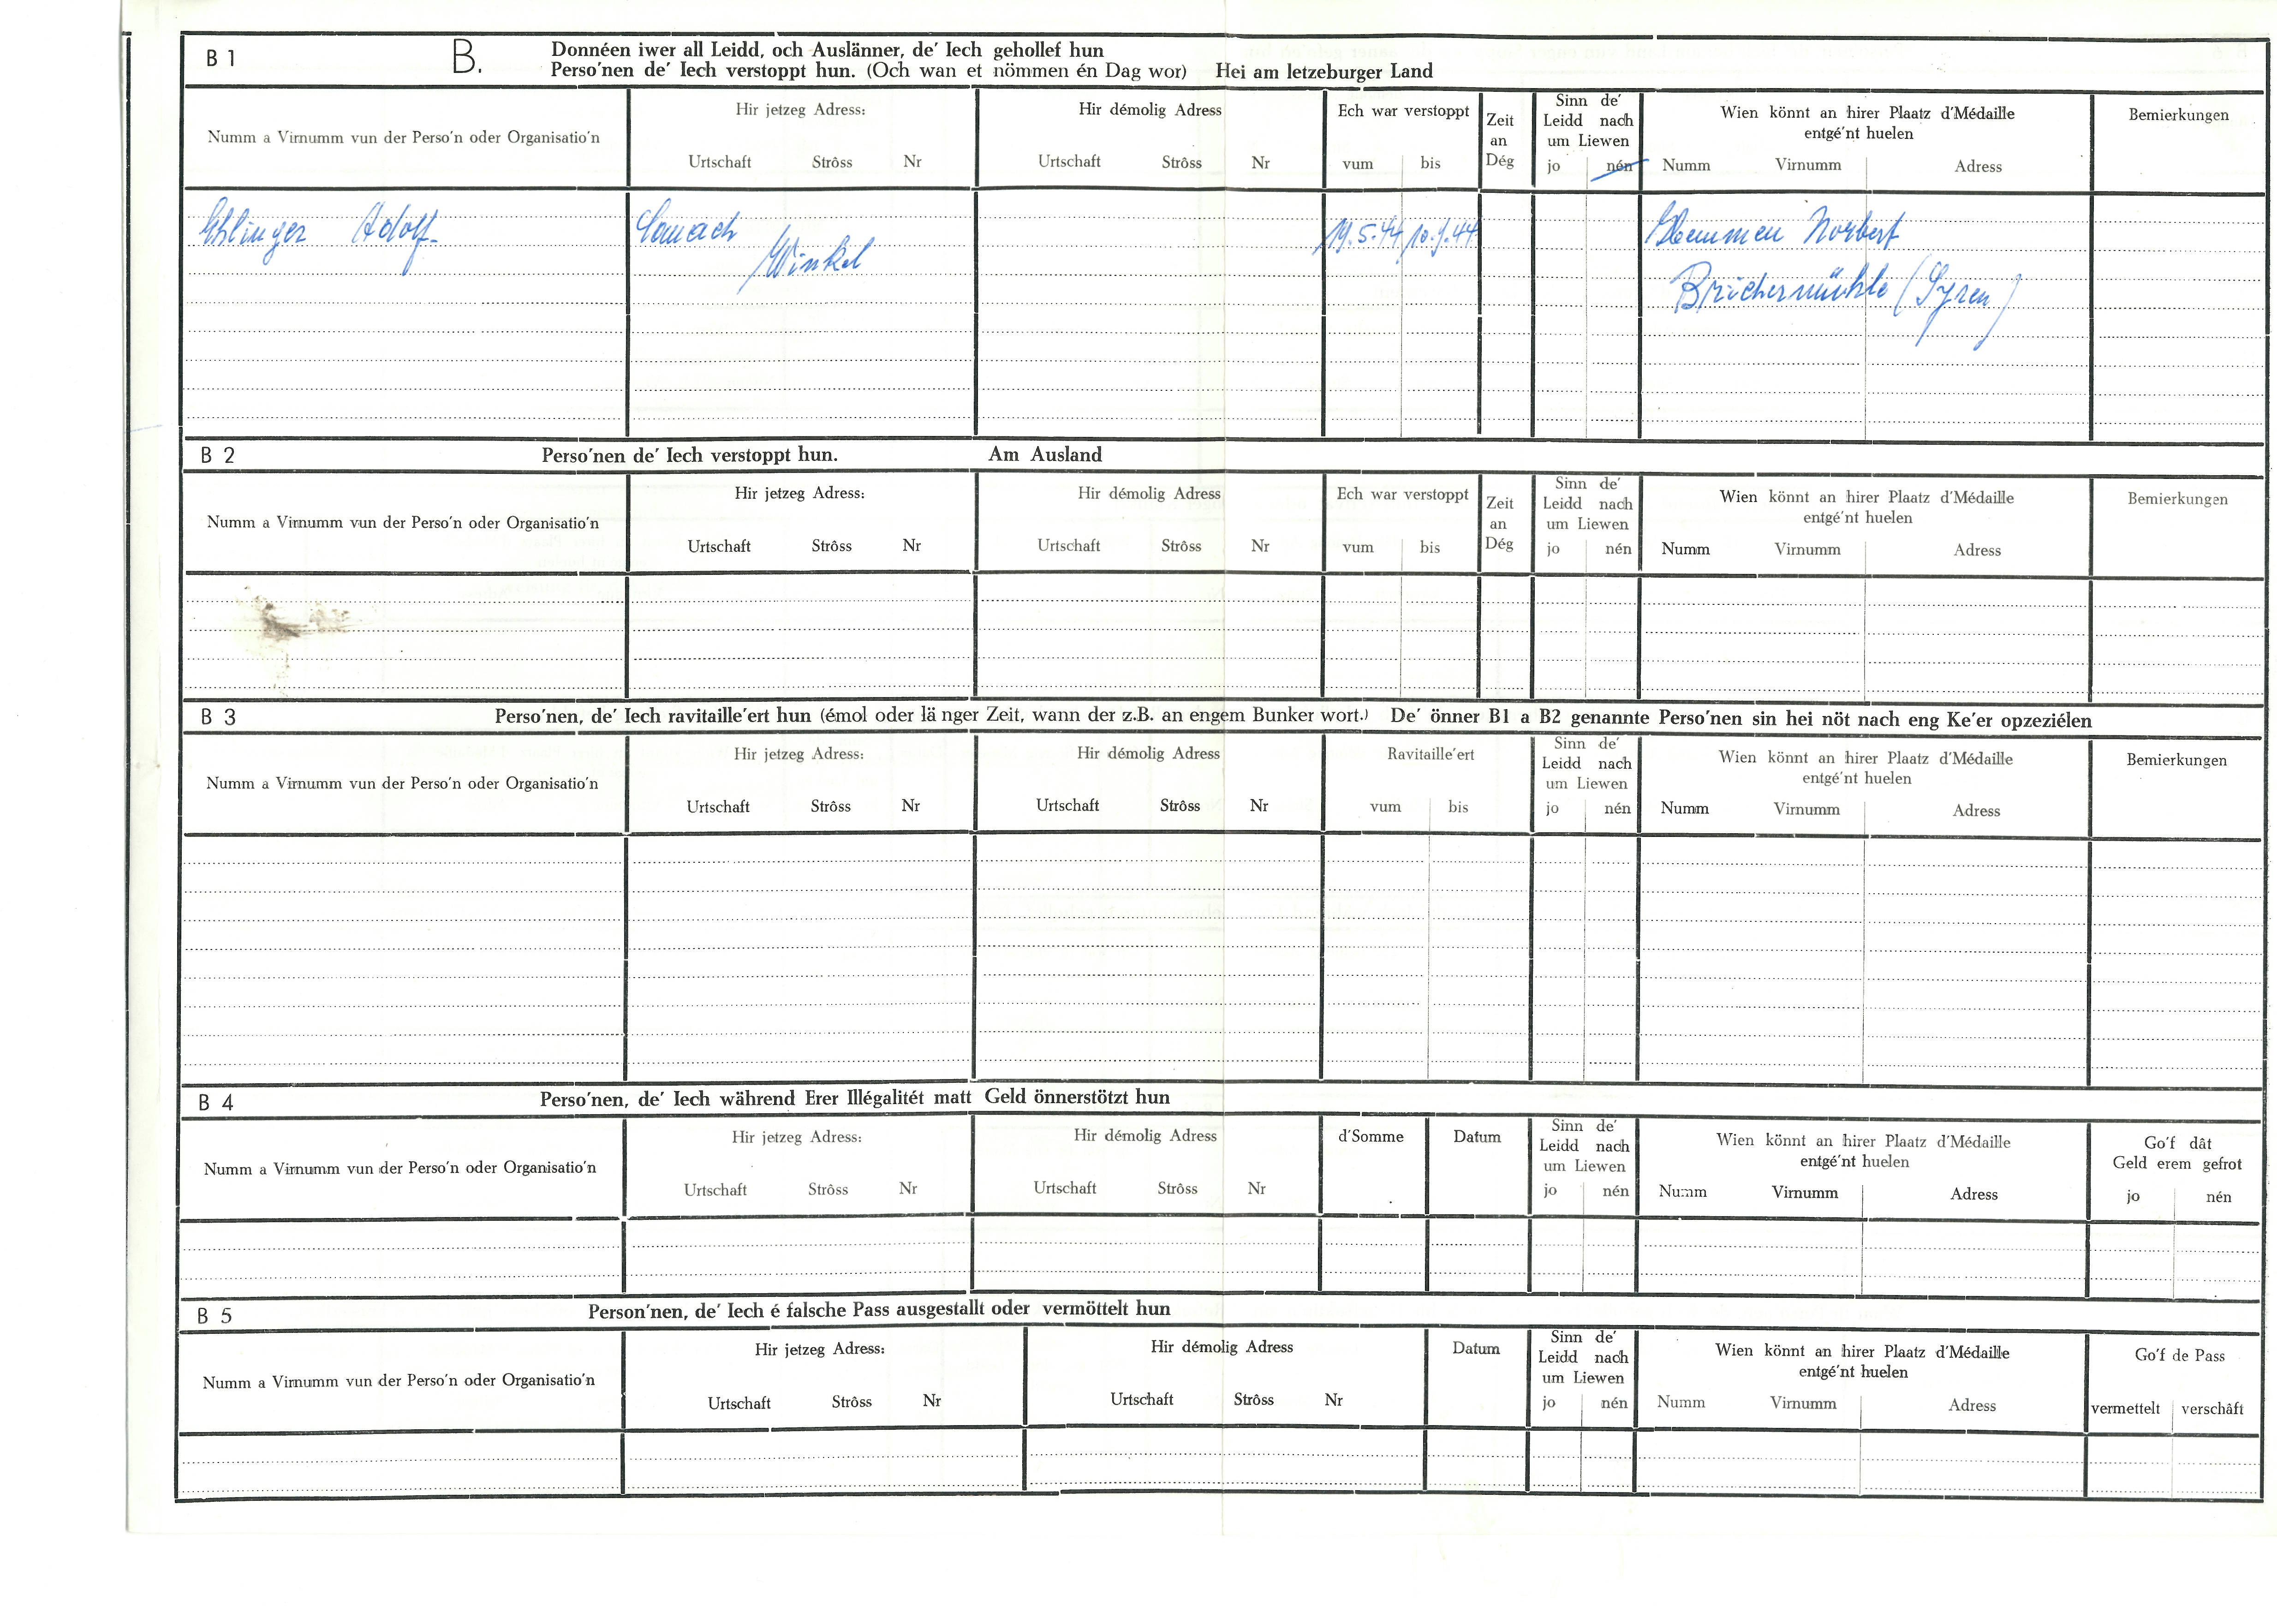 B 1 B. Donnéen iwer all Leidd, och Auslänner, de' Iech gehollef hun
Perso'nen de' Iech verstoppt hun. (Och wan et nömmen én Dag wor) Hei am letzeburger Land
Numm a Virnumm vun der Perso'n oder Organisatio'n
Hir jetzeg Adress:
Urtschaft Strôss Nr
Hir démolig Adress
Urtschaft Strôss Nr
Ech war verstoppt
vum bis
Zeit
an
Dég
Sinn de'
Leidd nach
um Liewen
jo nén
Wien könnt an hirer Plaatz d'Médaille
entgé'nt huelen
Numm Virnumm Adress
Bemierkungen
Ehlinger Adolf 19.5.44 10.9.44 Norbert
Winkel
Brichermühle (Syren)
B 2 Perso'nen de' Iech verstoppt hun. Am Ausland
Numm a Virnumm vun der Perso'n oder Organisatio'n
Hir jetzeg Adress:
Urtschaft Strôss Nr
Hir démolig Adress
Urtschaft Strôss Nr
Ech war verstoppt
vum bis
Zeit
an
Dég
Sinn de'
Leidd nach
um Liewen
jo nén
Wien könnt an hirer Plaatz d'Médaille
entgé'nt huelen
Numm Virnumm Adress
Bemierkungen
B 3 Perso'nen, de' Iech ravitaille'ert hun (émol oder länger Zeit, wann der z.B. an engem Bunker wort.) De' önner B1 a B2 genannte Perso'nen sin hei nöt nach eng Ke'er opzeziélen
Numm a Virnumm vun der Perso'n oder Organisatio'n
Hir jetzeg Adress:
Urtschaft Strôss Nr
Hir démolig Adress
Urtschaft Strôss Nr
Ravitaille'ert
vum bis
Sinn de'
Leidd nach
um Liewen
jo nén
Wien könnt an hirer Plaatz d'Médaille
entgé'nt huelen
Numm Virnumm Adress
Bemierkungen
B 4 Perso'nen, de' Iech während Erer Illégalitét matt Geld önnerstötzt hun
Numm a Virnumm vun der Perso'n oder Organisatio'n
Hir jetzeg Adress:
Urtschaft Strôss Nr
Hir démolig Adress
Urtschaft Strôss Nr
d'Somme
Datum
Sinn de'
Leidd nach
um Liewen
jo nén
Wien könnt an hirer Plaatz d'Médaille
entgé'nt huelen
Numm Virnumm Adress
Go'f dât
Geld erem gefrot
jo nén
B 5 Person'nen, de' Iech é falsche Pass ausgestallt oder vermöttelt hun
Numm a Virnumm vun der Perso'n oder Organisatio'n
Hir jetzeg Adress:
Urtschaft Strôss Nr
Hir démolig Adress
Urtschaft Strôss Nr
Datum
Sinn de'
Leidd nach
um Liewen
jo nén
Wien könnt an hirer Plaatz d'Médaille
entgé'nt huelen
Numm Virnumm Adress
Go'f de Pass
vermettelt verschâft